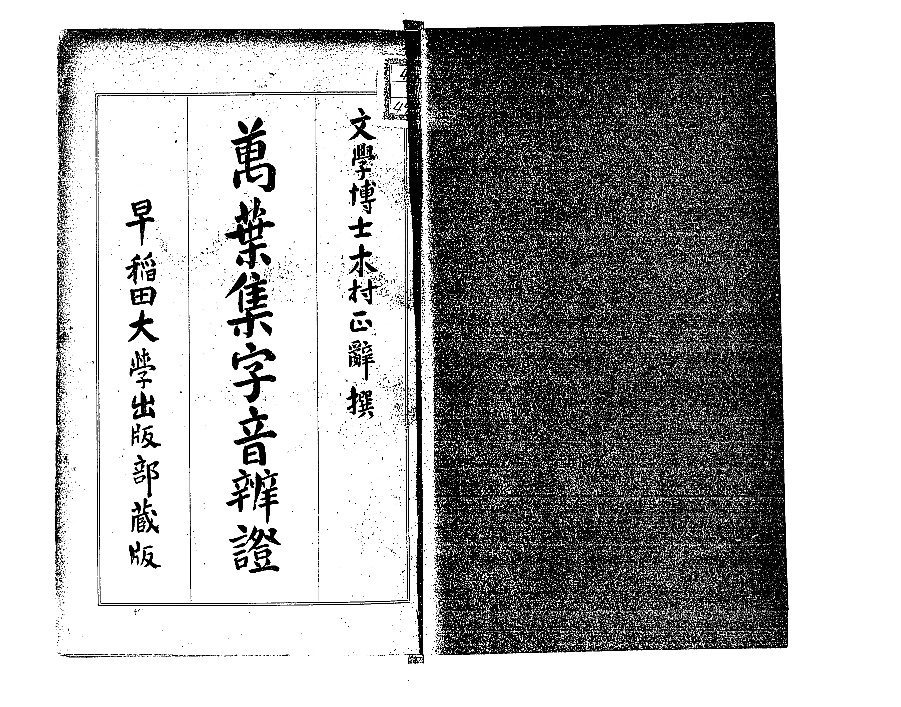 文學博士木村正辭撰
萬葉集字音辨證
早稲田大学出版部蔵版